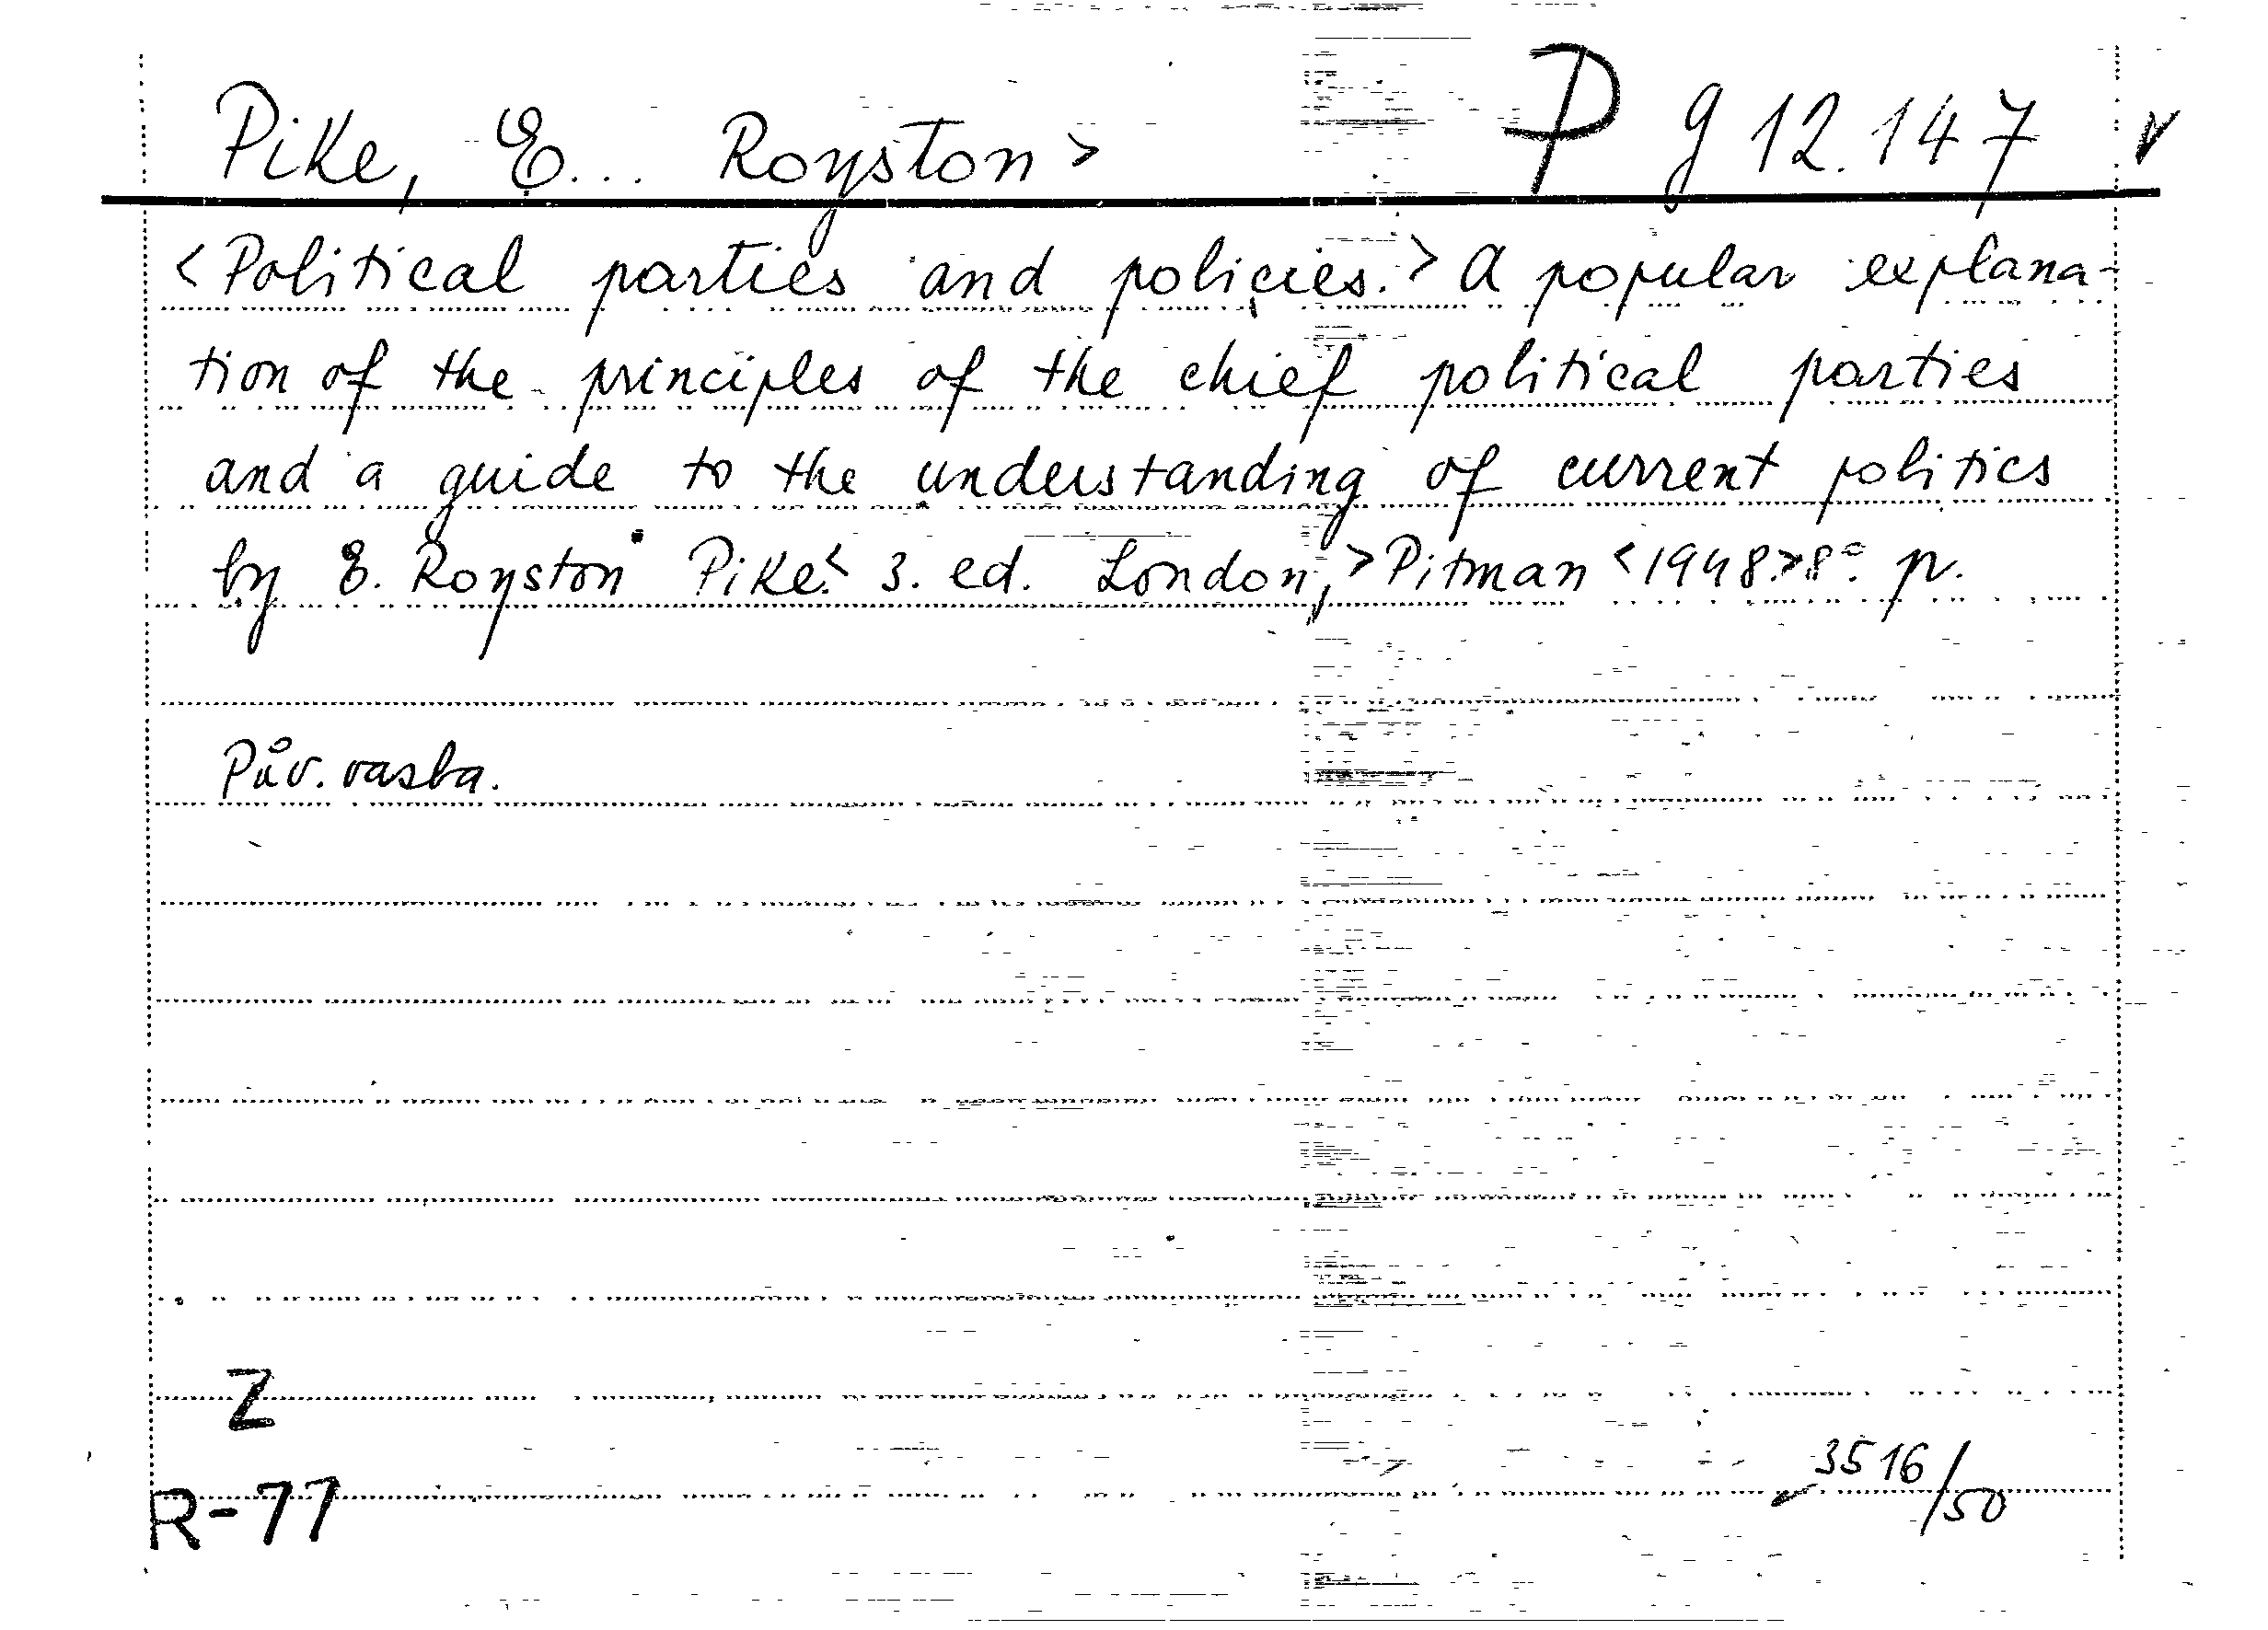 Pike, E... Royston> P g 12.147 v
<Political parties and policies.> A popular explana-
tion of the principles of the chief political parties
and a guide to the understanding of current politics
by E. Royston Pike.< 3. ed. London,> Pitman <1948.> 8°. p.
Pův. vasba.
Z
R-77
3516/50